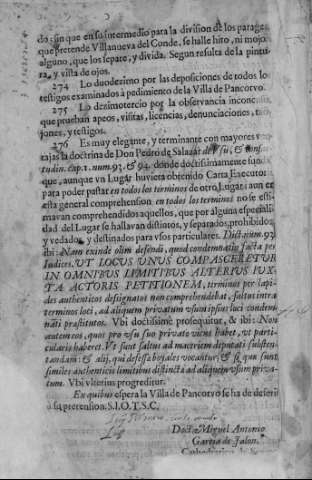 do; sin que en su intermedio para la division de los parages
que pretende Villanueva del Conde, se halle hito, ni mojon
alguno, que los separe, y divida. Segun resulta de la pintu-
ra, y vista de ojos.
274 Lo duodezimo por las deposiciones de todos los
testigos examinados à pedimiento de la Villa de Pancorvo.
275 Lo dezimotercio por la observancia inconcusa,
que prueban apeos, visitas, licencias, denunciaciones,
jones, y testigos.
276 Es muy elegante, y terminante con mayores ven-
tajas la doctrina de Don Pedro de Salazar de Vsu, & consue-
tudin. cap. 1. num. 93. & 94. donde doctissimamente
que, aunque vn Lugar huviera obtenido Carta Executoria
para poder pastar en todos los terminos de otro Lugar; aun en
esta general comprehension en todos los terminos no se esti-
mavan comprehendidos aquellos, que por alguna especiali-
dad del Lugar se hallavan distintos, y separados, prohibidos,
y vedados, y destinados para vsos particulares. Dict. num. 93.
ibi: Nam exinde olim defendi, quod condemnatio facta per
Iudices, VT LOCVS VNVS COMPASCERETVR
IN OMNIBVS LIMITIBVS ALTERIVS IVX-
TA ACTORIS PETITIONEM, terminos per lapi-
des authenticos designatos non comprehendebat, saltus intra
terminos loci, ad aliquem privatum vsum ipsius loci condem-
nati prastitutos. Vbi doctissimè prosequitur, & ibi: Non
autem eos, quos pro vsu suo privato vicus habet, vt parti-
cularis haberet. Vt sunt saltus ad macriem diputati substen-
tandam: & alij, qui defessa bojales vocantur; & si qui sunt
similes authenticis limitibus distincta ad aliquem vsum priva-
tum. Vbi vlterius progreditur.
Ex quibus espera la Villa de Pancorvo se ha de deferir
à su pretension. S.I.O.T.S.C.
Doct. Miguel Antonio
Garcia de Jalon.